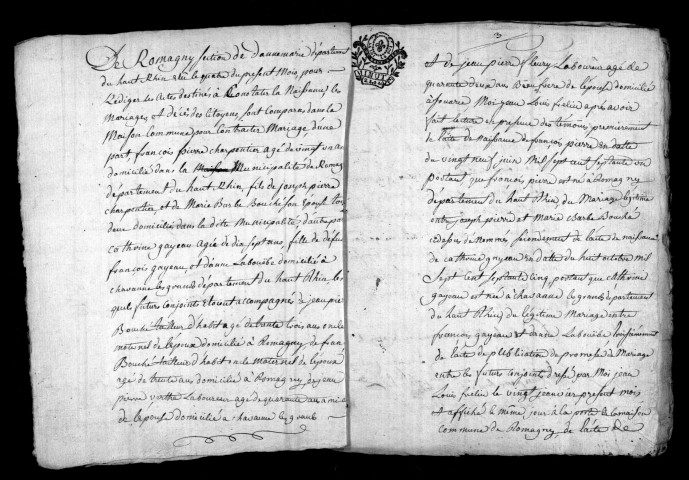 De Romagny section de dannemarie département
du haut Rhin élu le quatre du present Mois pour
Rediger les Actes destinés à Constater la Naissance, les
Mariages et décès des Citoyens, sont comparus dans la
Maison Commune, pour Contracter Mariage d'une
part francois pierre charpentier agé de vingt
domicilié dans la Municipalité de Romagny
département du haut Rhin, fils de joseph pierre
charpentier, et de Marie Barbe Bouché son Epouse tous
deux domiciliés dans la dite Municipalité, d'autre part
catherine gayeau agée de dix sept ans fille de défunt
francois gayeau, et d'anne Labourbe domiciliée à
chavanne les grands département du haut Rhin, les
quels futurs conjoints étoient accompagnés de jean pierre
Bouché tailleur d'habit agé de trente trois ans oncle
maternel de l'epoux domicilié à Romagny, de francois
Bouché tailleur d'habit oncle maternel de l'epoux
agé de trente ans domicilié à Romagny, de jean
pierre Laboureur agé de quarante ans ami
de l'epouse domicilié à chavanne les grands
3
et de jean pierre fleury Laboureur agé de
quarante deux ans Beau frere de l'épouse domicilié
à Moi jean Louis après avoir
fait lecture en presence des témoins, premierement
de l'acte de naissance de francois pierre en datte
du vingt neuf juin Mil sept cent septante un
portant que francois pierre est né à Romagny
département du haut Rhin du Mariage légitime
entre joseph pierre et Marie Barbe Bouché
cy dessus Nommés, secondement de l'acte de naissance
de catherine gayeau en date du huit octobre mil
Sept Cent Septante Cinq, portant que catherine
gayeau est née à chavanne les grands département
du haut Rhin du légitime Mariage entre
francois gayeau et d'anne Labourbe, troisiemement
de l'acte de publication de promesse de Mariage
entre les futurs Conjoints dressé par Moi jean
Louis le vingt janvier present mois
et affiché le même jour à la porte de la maison
commune de Romagny, de l'acte de